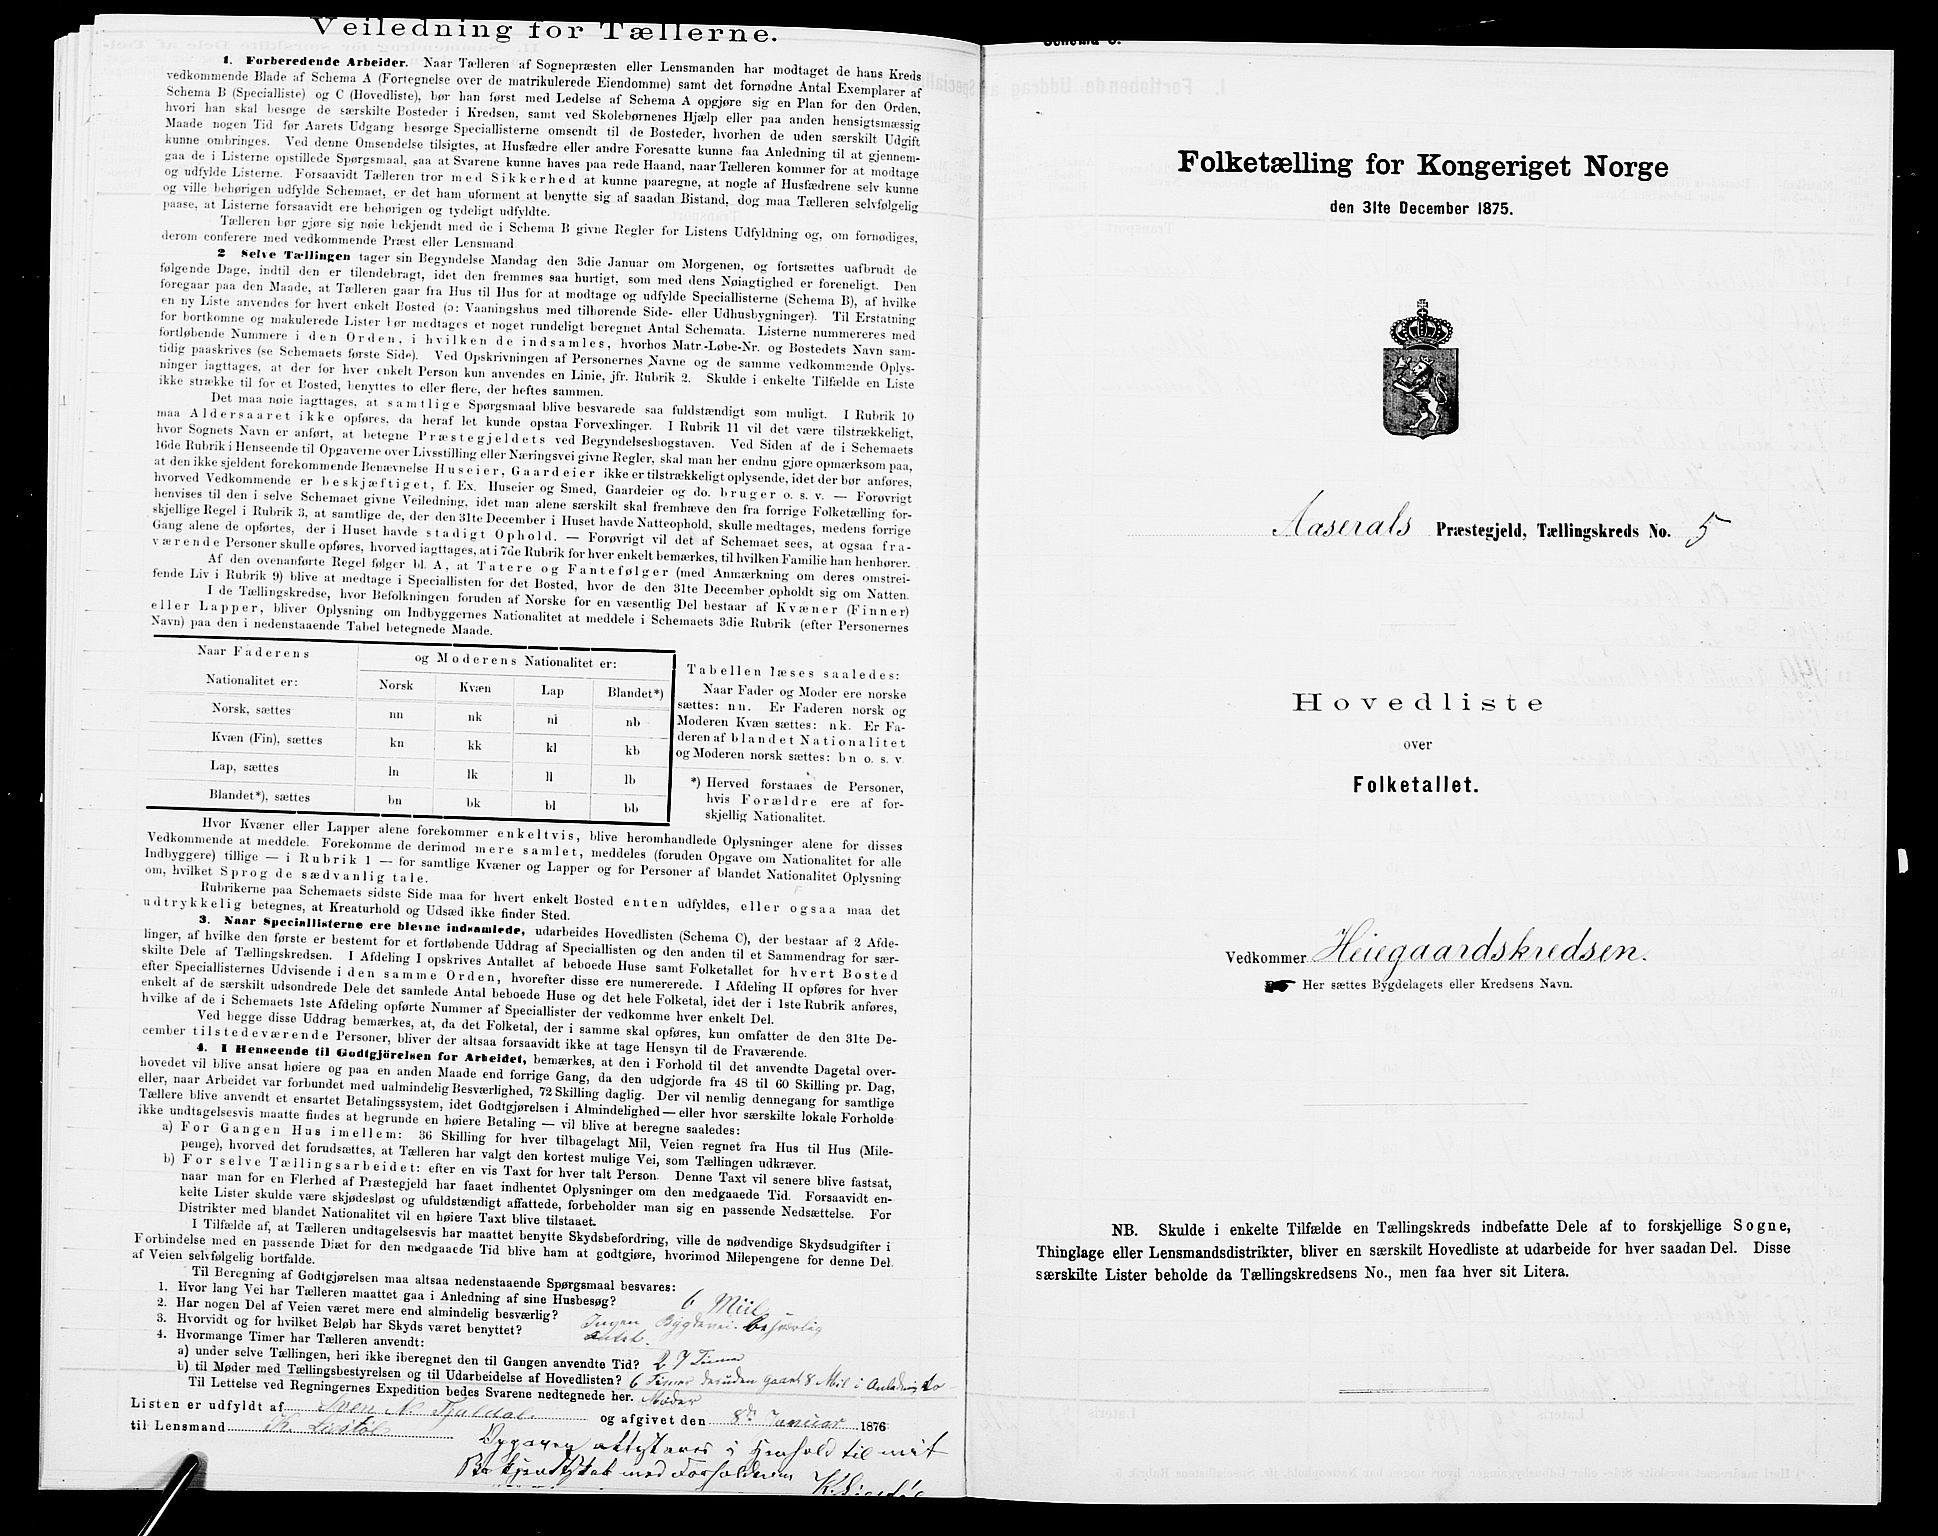 Veiledning for Tællerne.
1. Forberedende Arbeider. Naar Tælleren af Sognepræsten eller Lensmanden har modtaget de hans Kreds
vedkommende Blade af Schema A (Fortegnelse over de matrikulerede Eiendomme) samt det fornødne Antal Exemplarer af
Schema B (Specialliste) og C (Hovedliste), bør han først med Ledelse af Schema A opgjøre sig en Plan for den Orden,
hvori han skal besøge de særskilte Bosteder i Kredsen, samt ved Skolebørnenes Hjælp eller paa anden hensigtsmæssig
Maade nogen Tid før Aarets Udgang besørge Speciallisterne omsendt til de Bosteder, hvorhen de uden særskilt Udgift
kunne ombringes. Ved denne Omsendelse tilsigtes, at Husfædre eller andre Foresatte kunne faa Anledning til at gjennem-
gaa de i Listerne opstillede Spørgsmaal, saa at Svarene kunne haves paa rede Haand, naar Tælleren kommer for at modtage
og udfylde Listerne. Forsaavidt Tælleren tror med Sikkerhed at kunne paaregne, at nogle af Husfædrene selv kunne
og ville behørigen udfylde Schemaet, er det ham uforment at benytte sig af saadan Bistand, dog maa Tælleren selvfølgelig
paase, at Listerne forsaavidt ere behørigen og tydeligt udfyldte.
Tælleren bør gjøre sig nøie bekjendt med de i Schema B givne Regler for Listens Udfyldning og, om fornødiges,
derom conferere med vedkommende Præst eller Lensmand
2 Selve Tællingen tager sin Begyndelse Mandag den 3die Januar om Morgenen, og fortsættes uafbrudt de
følgende Dage, indtil den er tilendebragt, idet den fremmes saa hurtigt, som med dens Nøiagtighed er foreneligt. Den
foregaar paa den Maade, at Tælleren gaar fra Hus til Hus for at modtage og udfylde Speciallisterne (Schema B), af hvilke
en ny Liste anvendes for hvert enkelt Bosted (ɔ: Vaaningshus med tilhørende Side- eller Udhusbygninger). Til Erstatning
for bortkomne og makulerede Lister bør medtages et noget rundeligt beregnet Antal Schemata. Listerne nummereres med
fortløbende Nummere i den Orden, i hvilken de indsamles, hvorhos Matr.-Løbe-Nr. og Bostedets Navn sam-
tidig paaskrives (se Schemaets første Side). Ved Opskrivningen af Personernes Navne og de samme vedkommende Oplys-
ninger iagttages, at der for hver enkelt Person kun anvendes en Linie, jfr. Rubrik 2. Skulde i enkelte Tilfælde en Liste
ikke strække til for et Bosted, benyttes to eller flere, der heftes sammen.
Det maa nøie iagttages, at samtlige Spørgsmaal blive besvarede saa fuldstændigt som muligt. I Rubrik 10
maa Aldersaaret ikke opføres, da heraf let kunde opstaa Forvexlinger. I Rubrik 11 vil det være tilstrækkeligt,
hvor Sognets Navn er anført, at betegne Præstegjeldets ved Begyndelsesbogstaven. Ved Siden af de i Schemaets
16de Rubrik i Henseende til Opgaverne over Livsstilling eller Næringsvei givne Regler, skal man her endnu gjøre opmærksom paa,
at den ikke sjeldent forekommende Benævnelse Huseier, Gaardeier ikke er tilstrækkeligt oplysende, idet der bør anføres,
hvorved Vedkommende er beskjæftiget, f. Ex. Huseier og Smed, Gaardeier og do. bruger o. s. v. — Forøvrigt
henvises til den i selve Schemaet givne Veiledning, idet man alene særskilt skal fremhæve den fra forrige Folketælling for-
skjellige Regel i Rubrik 3, at samtlige de, der den 31te December i Huset havde Natteophold, skulle medtages, medens forrige
Gang alene de opførtes, der i Huset havde stadigt Ophold. — Forøvrigt vil det af Schemaet sees, at ogsaa fra-
værende Personer skulle opføres, hvorved iagttages, at i 7de Rubrik for hver enkelt bemærkes, til hvilken Familie han henhører.
Af den ovenanførte Regel følger bl. A., at Tatere og Fantefølger (med Anmærkning om deres omstrei-
fende Liv i Rubrik 9) blive at medtage i Speciallisten for det Bosted, hvor de den 31te December opholdt sig om Natten.
I de Tællingskredse, hvor Befolkningen foruden af Norske for en væsentlig Del bestaar af Kvæner (Finner)
eller Lapper, bliver Oplysning om Indbyggernes Nationalitet at meddele i Schemaets 3die Rubrik (efter Personernes
Navn) paa den i nedenstaaende Tabel betegnede Maade.
Naar Faderens
Nationalitet er:
og Moderens Nationalitet er:
Norsk Kvæn Lap Blandet*)
Norsk, sættes nn nk nl nb
Kvæn (Fin), sættes kn kk kl kb
Lap, sættes ln lk ll lb
Blandet*), sættes bn bk bl bb
Tabellen læses saaledes:
Naar Fader og Moder ere norske
sættes: nn. Er Faderen norsk og
Moderen Kvæn sættes: nk. Er Fa-
deren af blandet Nationalitet
og Moderen norsk sættes: bn o. s. v.
*) Herved forstaaes de Personer,
hvis Forældre ere af for-
skjellig Nationalitet.
Hvor Kvæner eller Lapper alene forekommer enkeltvis, blive heromhandlede Oplysninger alene for disses
Vedkommende at meddele. Forekomme de derimod mere samlet, meddeles (foruden Opgave om Nationalitet for alle
Indbyggere) tillige — i Rubrik 1 — for samtlige Kvæner og Lapper og for Personer af blandet Nationalitet Oplysning
om, hvilket Sprog de sædvanlig tale.
Rubrikerne paa Schemaets sidste Side maa for hvert enkelt Bosted enten udfyldes, eller ogsaa maa det
udtrykkelig betegnes, at Kreaturhold og Udsæd ikke finder Sted.
3. Naar Speciallisterne ere blevne indsamlede, udarbeides Hovedlisten (Schema C), der bestaar af 2 Afde-
linger, af hvilke den første er bestemt for et fortløbende Uddrag af Speciallisten og den anden til et Sammendrag for sær-
skilte Dele af Tællingskredsen. I Afdeling I opskrives Antallet af beboede Huse samt Folketallet for hvert Bosted
efter Speciallisternes Udvisende i den samme Orden, hvorefter disse ere nummererede. I Afdeling II opføres for hver
enkelt af de særskilt udsondrede Dele det samlede Antal beboede Huse og det hele Folketal, idet der i 1ste Rubrik anføres,
hvilke af de i Schemaets 1ste Afdeling opførte Nummer af Speciallister der vedkomme hver enkelt Del.
Ved begge disse Uddrag bemærkes, at, da det Folketal, der i samme skal opføres, kun omfatter de den 31te De-
cember tilstedeværende Personer, bliver der altsaa forsaavidt ikke at tage Hensyn til de Fraværende.
4. I Henseende til Godtgjörelsen for Arbeidet, bemærkes, at den i Forhold til det anvendte Dagetal over-
hovedet vil blive ansat høiere og paa en anden Maade end forrige Gang, da den udgjorde fra 48 til 60 Skilling pr. Dag,
eller, naar Arbeidet var forbundet med ualmindelig Besværlighed, 72 Skilling daglig. Der vil nemlig dennegang for samtlige
Tællere blive anvendt et ensartet Betalingssystem, idet Godtgjørelsen i Almindelighed — eller hvor særskilte lokale Forholde
ikke undtagelsesvis maatte findes at begrunde en høiere Betaling — vil blive at beregne saaledes:
a) For Gangen Hus imellem: 36 Skilling for hver tilbagelagt Mil, Veien regnet fra Hus til Hus (Mile-
penge), hvorved det forudsættes, at Tælleren har valgt den kortest mulige Vei, som Tællingen udkræver.
b) For selve Tællingsarbeidet: efter en vis Taxt for hver talt Person. Denne Taxt vil senere blive fastsat,
naar man for en Flerhed af Præstegjeld har faaet indhentet Oplysninger om den medgaaede Tid. Forsaavidt en-
kelte Lister skulde være skjødesløst og ufuldstændigt affattede, forbeholder man sig en passende Nedsættelse. For
Distrikter med blandet Nationalitet vil en høiere Taxt blive tilstaaet.
I Tilfælde af, at Tælleren undtagelsesvis har maattet benytte Skydsbefordring, ville de nødvendige Skydsudgifter i
Forbindelse med en passende Diæt for den medgaaede Tid blive ham at godtgjøre, hvorimod Milepengene for denne Del
af Veien selvfølgelig bortfalde.
Til Beregning af Godtgjørelsen maa altsaa nedenstaaende Spørgsmaal besvares:
1. Hvor lang Vei har Tælleren maattet gaa i Anledning af sine Husbesøg? 6 Miil
2. Har nogen Del af Veien været mere end almindelig besværlig? Ingen Bygdevei. besværlig
3. Hvorvidt og for hvilket Beløb har Skyds været benyttet?
4. Hvormange Timer har Tælleren anvendt:
a) under selve Tællingen, heri ikke iberegnet den til Gangen anvendte Tid? 27 Timer
b) til Møder med Tællingsbestyrelsen og til Udarbeidelse af Hovedlisten? 6 Timer desuden gaaet 8 Mil i Anledning to
Til Lettelse ved Regningernes Expedition bedes Svarene nedtegnede her. Møder
Listen er udfyldt af Sven N. Fjaldal og afgivet den 8de Januar 1876
til Lensmand K. Liestøl
Opgaven attesteres i Henhold til mit
Bekjendtskab med Forholdene
K. Liestøl
Schema C.
Folketælling for Kongeriget Norge
den 31te December 1875.
Aaserals Præstegjeld, Tællingskreds No. 5
Hovedliste
over
Folketallet.
Vedkommer Heiegaardskredsen.
Her sættes Bygdelagets eller Kredsens Navn.
NB. Skulde i enkelte Tilfælde en Tællingskreds indbefatte Dele af to forskjellige Sogne,
Thinglage eller Lensmandsdistrikter, bliver en særskilt Hovedliste at udarbeide for hver saadan Del. Disse
særskilte Lister beholde da Tællingskredsens No., men faa hver sit Litera.